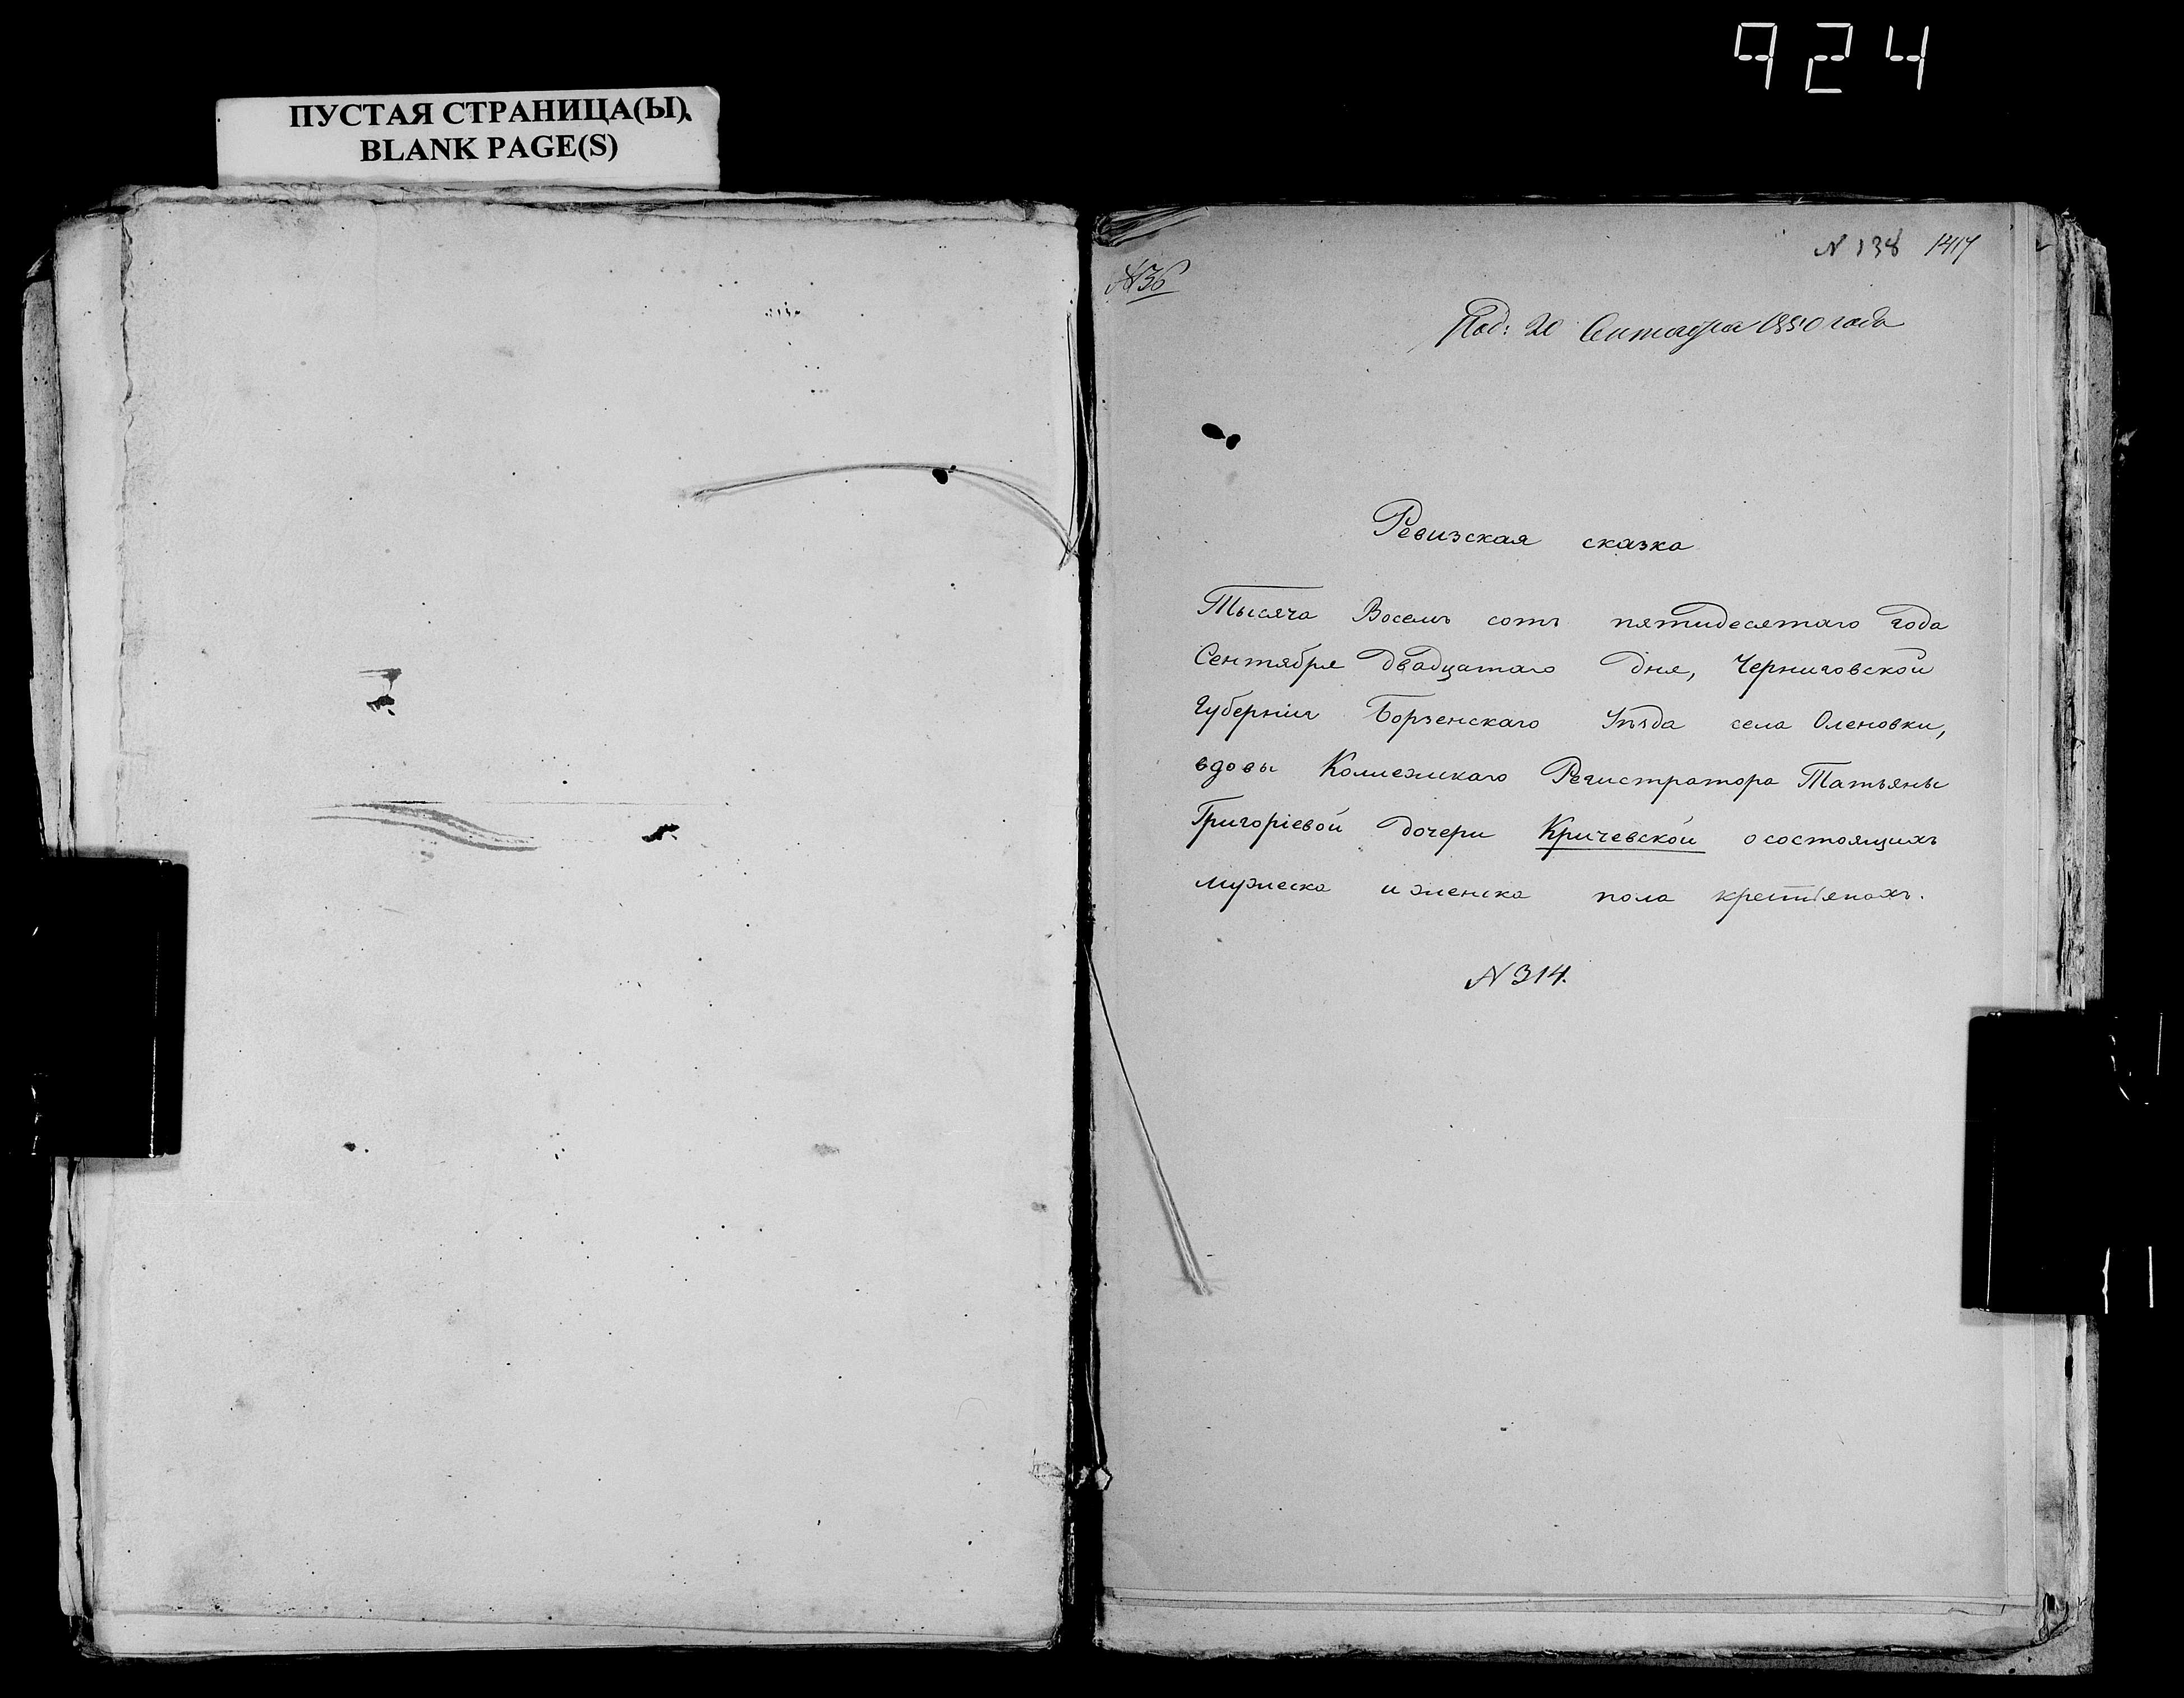 924
ПУСТАЯ СТРАНИЦА(Ы)
BLANK PAGE(S)
N 138 1417
№36
Под: 20 Сентября 1850 года
Ревизская сказка
Тысяча Восемь сотъ пятидесятаго года
Сентября двадцатаго дня, Черниговской
Губерніи Борзенскаго Уѣзда села Оленовки,
вдовы Коллежскаго Регистратора Татьяны
Григоріевой дочери Кричевской о состоящихъ
мужеска и женска пола крестьянахъ.
N 314.